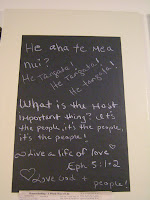 He aha te mea
nui?
He tangata!
He tangata!
He tangata!
What is the Most
important thing? It's
the people, it's the people,
it's the people!
Live a life of love
Eph 5:1+2
Love God +
people!